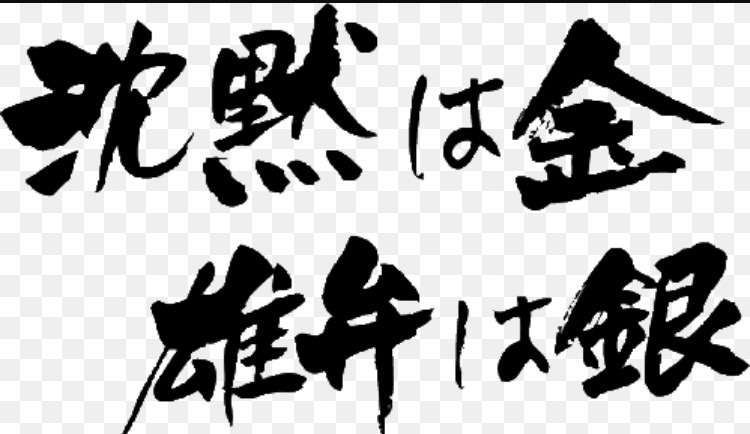 沈黙は金
雄弁は銀